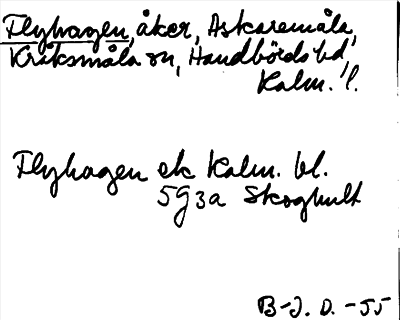 Flyhagen, åker, Askaremåla,
Kråksmåla sn, Handbörds hd,
Kalm. l.
Flyhagen ek Kalm. bl.
5G3a Skoghult
B-J. D. -55